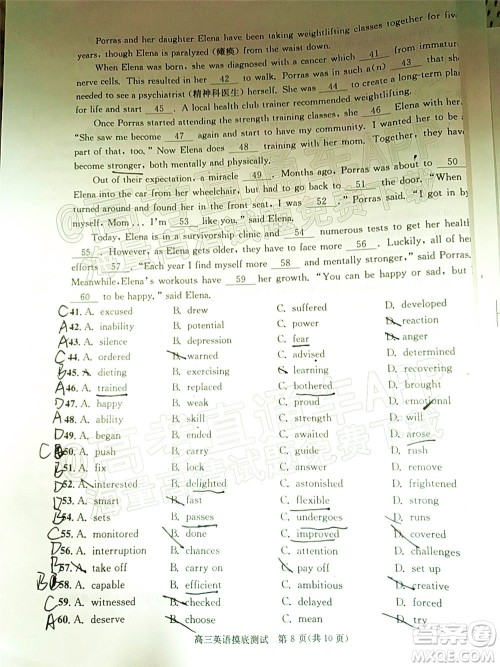 Porras and her daughter Elena have been taking weightlifting classes together for five
years, though Elena is paralyzed (瘫痪) from the waist down.
When Elena was born, she was diagnosed with a cancer which 41 from immature
nerve cells. This resulted in her 42 to walk. Porras was in such a(n) 43 as she
needed to see a psychiatrist (精神科医生). She was 44 to create a long-term plan
for life and start 45 . A local health club trainer recommended weightlifting.
Once Porras started attending the strength training classes, she 46 Elena with her.
"She saw me become 47 again and started to want it. I wanted her to be a
big part of this, too." Now Elena does 48 training with her mom. Together, they have
become stronger, both mentally and physically.
Out of their expectation, a miracle 49 . Months ago, Porras was about to 50
Elena into the car from her wheelchair, but had to 51 the door. "When I
turned around and found her in the car, I was 52 ," said Porras. "I got in by
myself, Mom... I'm 53 ," said Elena.
Today, Elena is in a survivorship clinic and 54 numerous tests to get her health
55 . However, as Elena gets older, they have to face more 56 . Luckily, all of her
efforts 57 . "Each year I find myself more 58 and mentally stronger," said Porras.
Meanwhile, Elena's workouts have 59 her growth. "You can be happy or sad, but
60 to be happy," said Elena.
C 41. A. excused B. drew C. suffered D. developed
A 42. A. inability B. potential C. power D. reaction
A 43. A. silence B. depression C. fear D. anger
C 44. A. ordered B. warned C. advised D. determined
B 45. A. dieting B. exercising C. learning D. recovering
A 46. A. trained B. replaced C. bothered D. brought
D 47. A. happy B. weak C. proud D. emotional
A 48. A. ability B. skill C. strength D. will
D 49. A. began B. ended C. arose D. arose
50. A. push B. carry C. guide D. rush
B 51. A. fix B. lock C. find D. knock
D 52. A. interested B. delighted C. astonished D. frightened
53. A. smart B. fast C. flexible D. strong
54. A. sets B. passes C. undergoes D. runs
C 55. A. monitored B. done C. improved D. covered
D 56. A. interruption B. chances C. attention D. challenges
B 57. A. take off B. carry on C. pay off D. set up
58. A. capable B. efficient C. ambitious D. creative
C 59. A. witnessed B. checked C. delayed D. affected
A 60. A. deserve B. choose C. mean D. try
高三英语摸底测试 第 8 页(共 10 页)